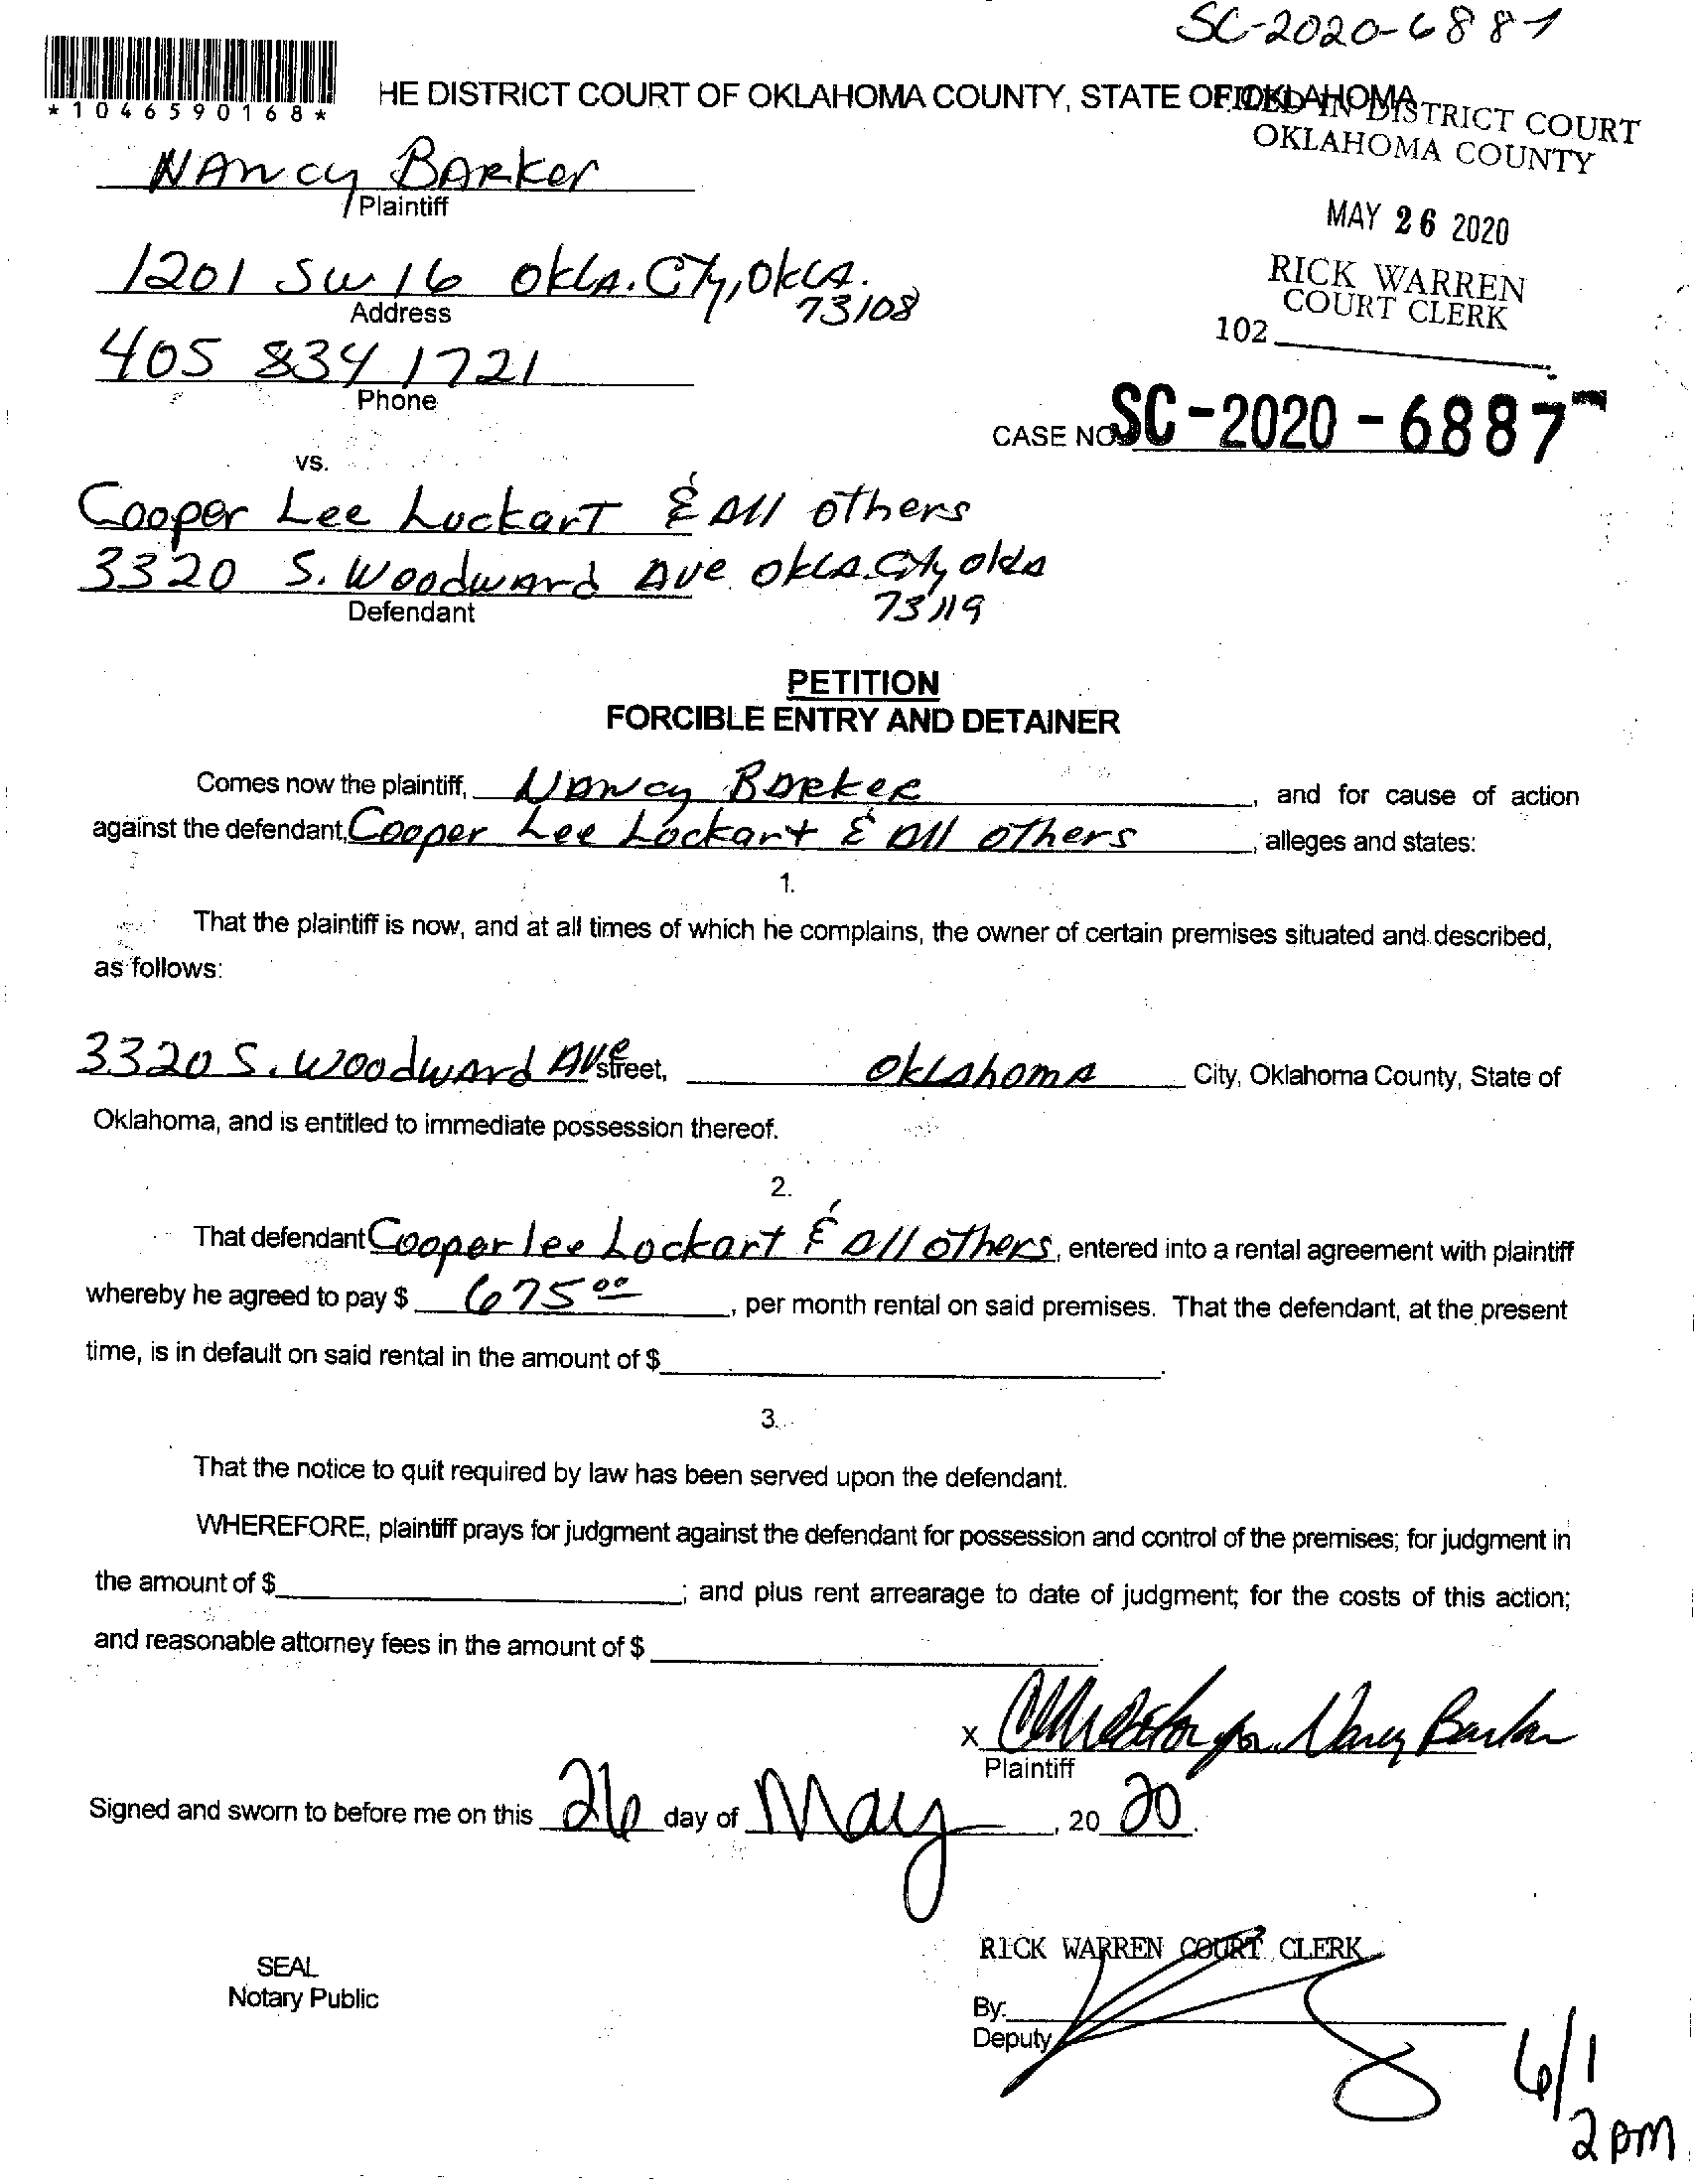 SC-2020-6887
*1046590168*
HE DISTRICT COURT OF OKLAHOMA COUNTY, STATE OF OKLAHOMA
FILED IN DISTRICT COURT
OKLAHOMA COUNTY
NANCY BARKER
Plaintiff
MAY 26 2020
1201 SW 16 OKLA. CTY, OKLA.
73108
Address
RICK WARREN
COURT CLERK
102
405 834 1721
Phone
CASE NO. SC-2020-6887
vs.
Cooper Lee Lockart & All others
3320 S. Woodward Ave OKLA. Cty, okla
73119
Defendant
PETITION
FORCIBLE ENTRY AND DETAINER
Comes now the plaintiff, NANCY BARKER, and for cause of action
against the defendant, Cooper Lee Lockart & All others, alleges and states:
1.
That the plaintiff is now, and at all times of which he complains, the owner of certain premises situated and described,
as follows:
3320 S. Woodward Ave street, Oklahoma City, Oklahoma County, State of
Oklahoma, and is entitled to immediate possession thereof.
2.
That defendant Cooper lee Lockart & all others, entered into a rental agreement with plaintiff
whereby he agreed to pay $ 675 00, per month rental on said premises. That the defendant, at the present
time, is in default on said rental in the amount of $ .
3.
That the notice to quit required by law has been served upon the defendant.
WHEREFORE, plaintiff prays for judgment against the defendant for possession and control of the premises; for judgment in
the amount of $ ; and plus rent arrearage to date of judgment; for the costs of this action;
and reasonable attorney fees in the amount of $ .
X for Nancy Barker
Plaintiff
Signed and sworn to before me on this 26 day of May, 20 20.
RICK WARREN COURT CLERK
SEAL
Notary Public
By:
Deputy
6/1
2pm